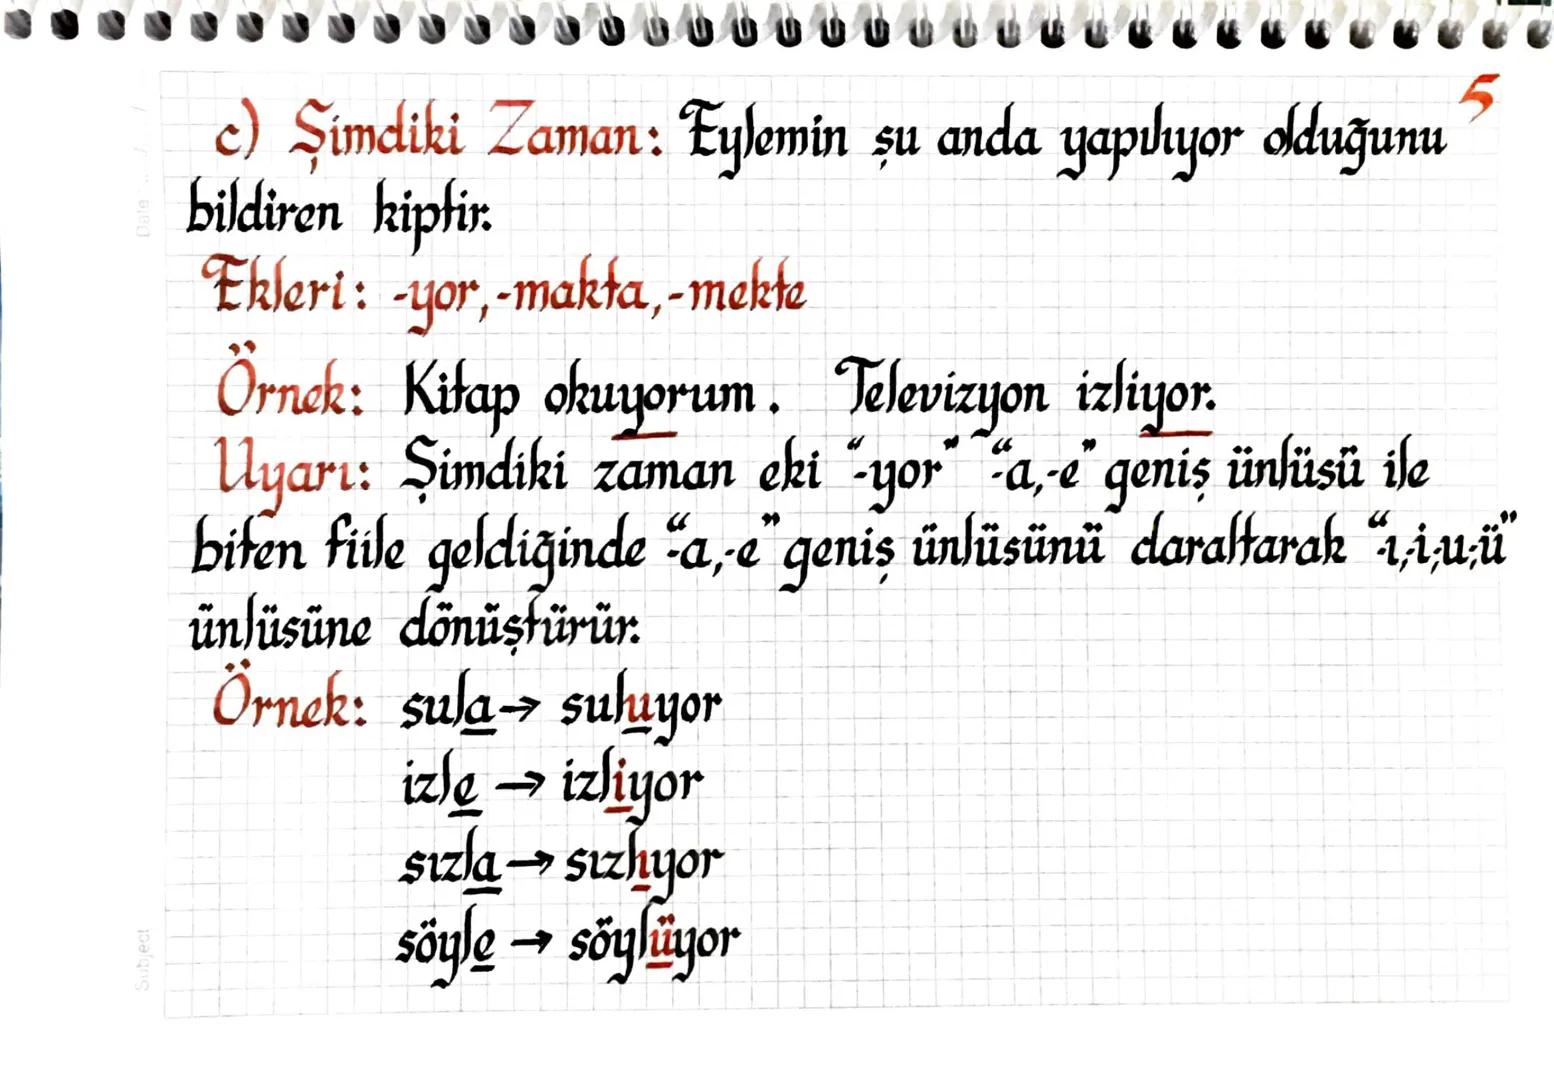 5
c) Şimdiki Zaman: Eylemin şu anda yapılıyor olduğunu
bildiren kiptir.
Ekleri: -yor, -makta, -mekte
Örnek: Kitap okuyorum. Televizyon izliyor.
Uyarı: Şimdiki zaman eki "-yor" "-a,-e" geniş ünlüsü ile
biten fiile geldiğinde "-a,-e" geniş ünlüsünü daraltarak "-ı,-i,-u,-ü"
ünlüsüne dönüştürür.
Örnek: sula → suluyor
izle → izliyor
sızla → sızlıyor
söyle → söylüyor
Date
Subject